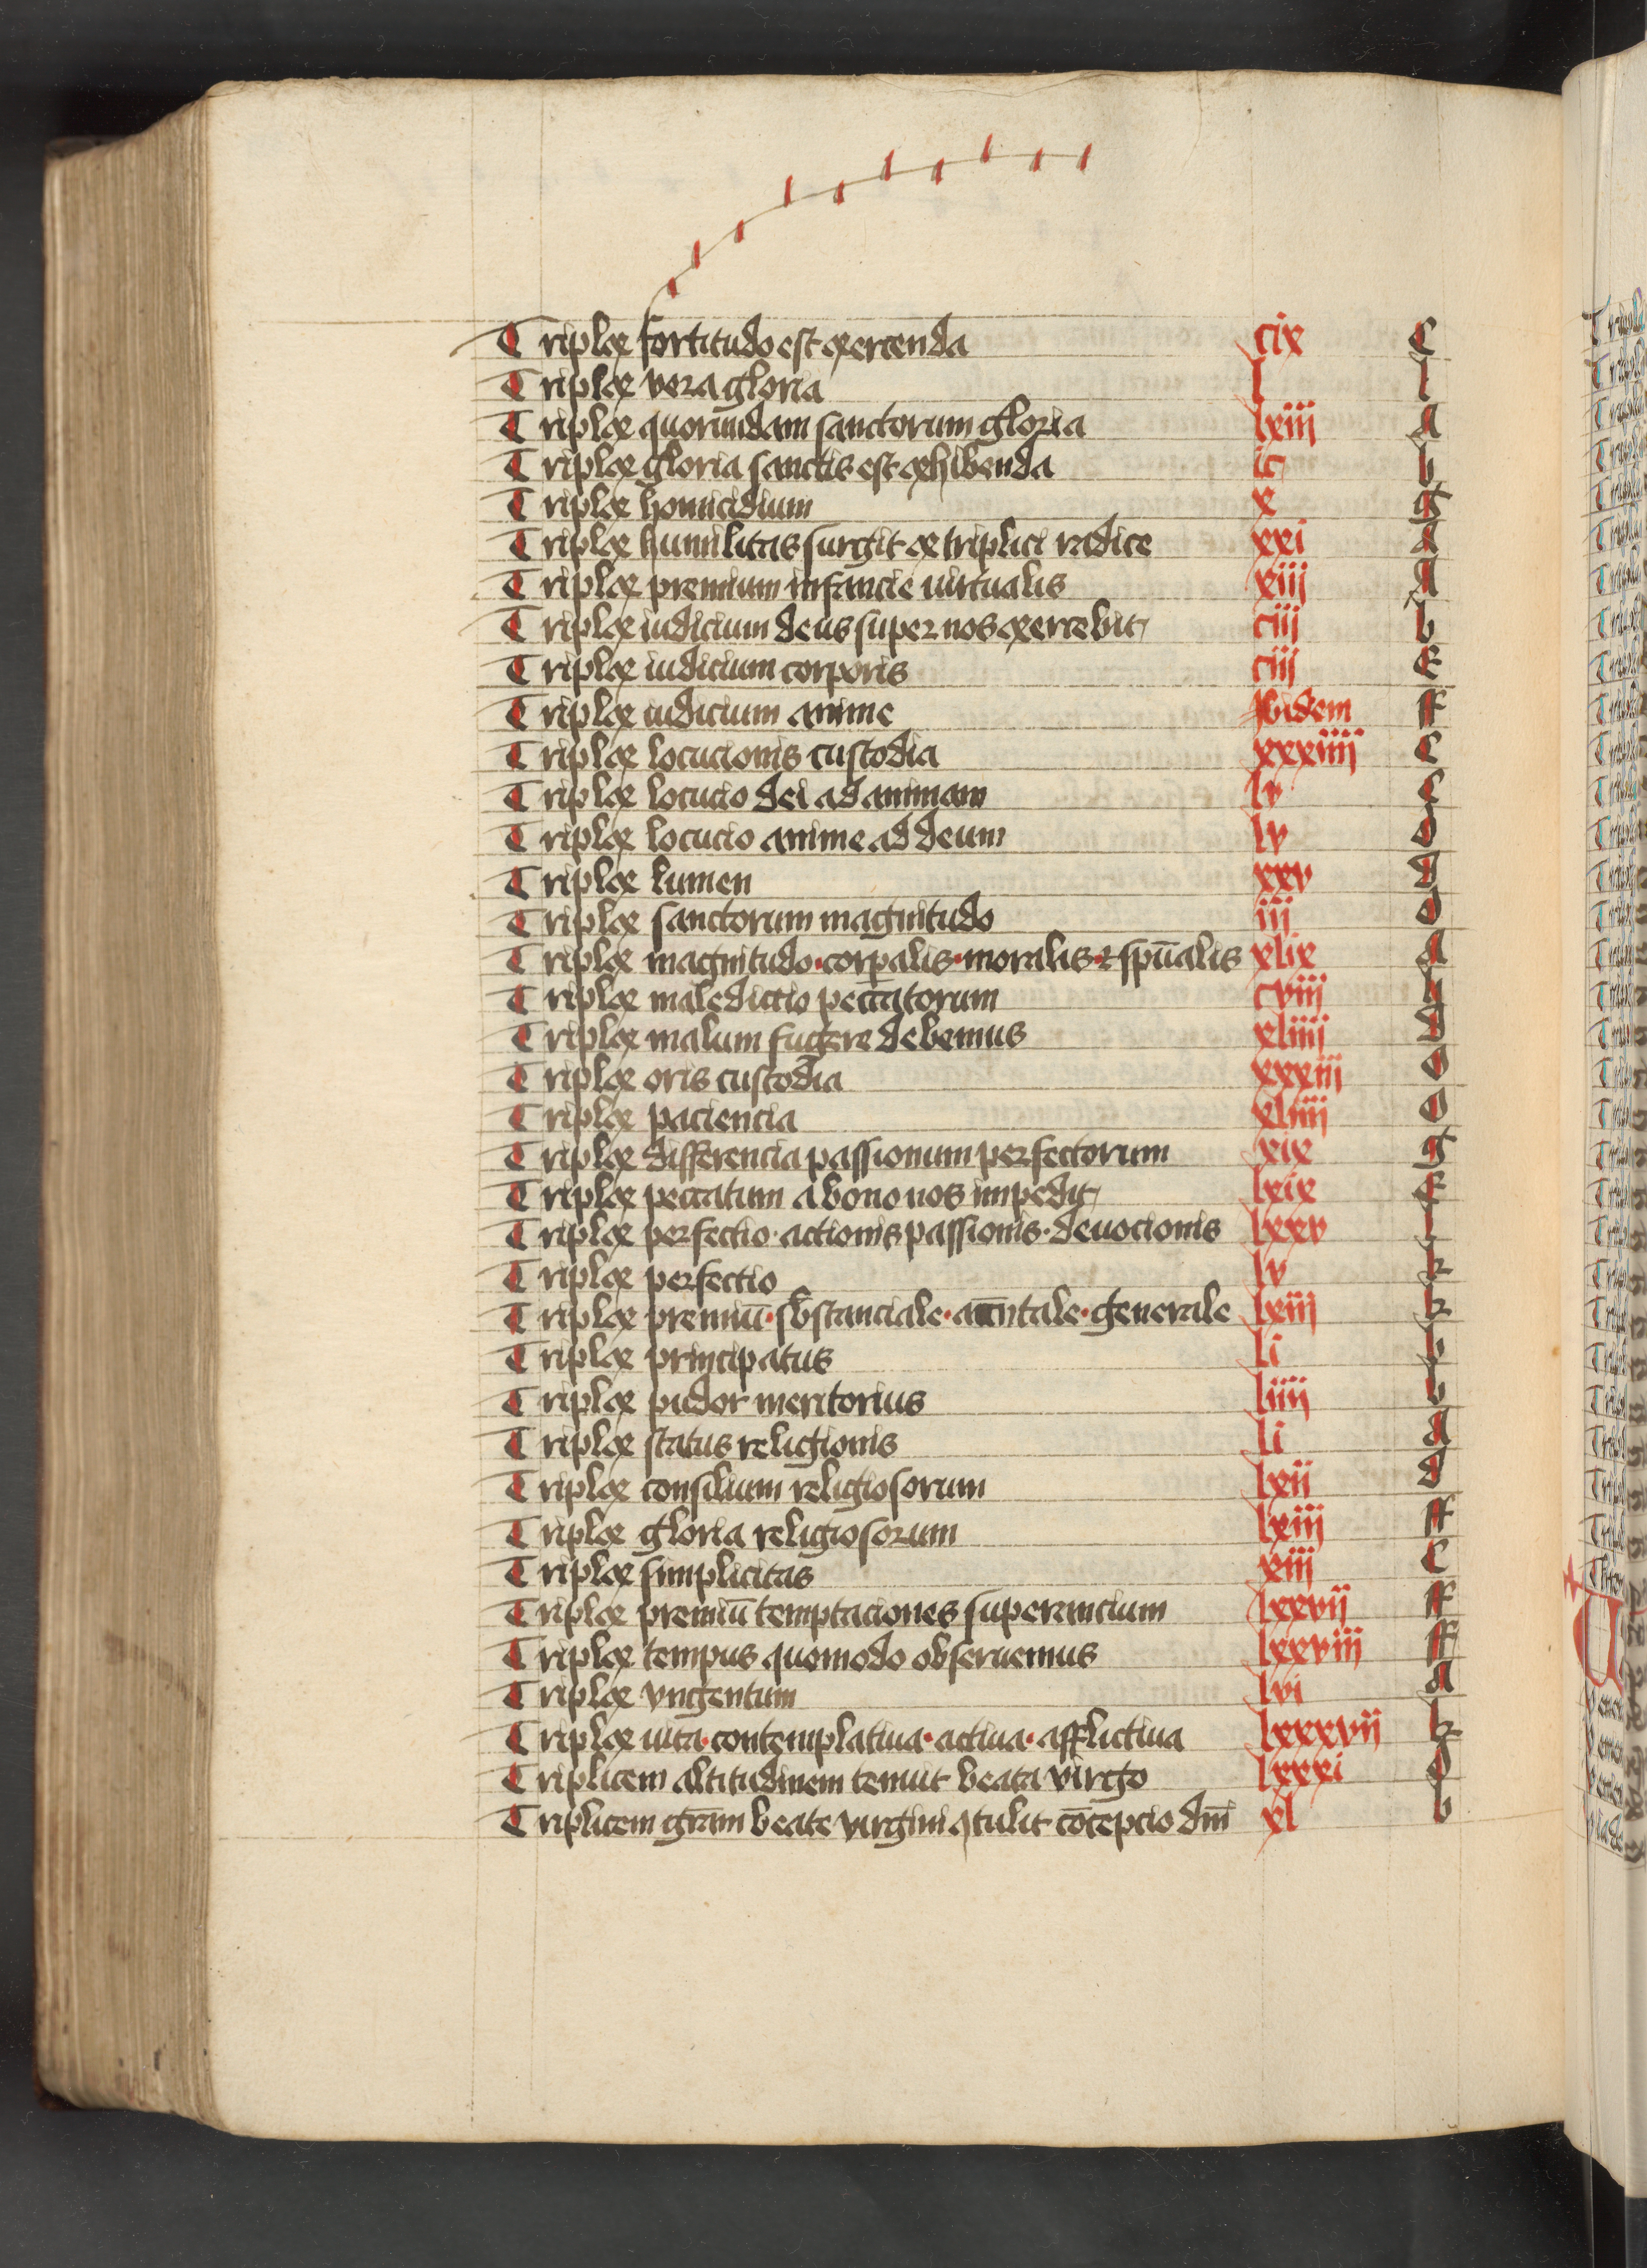 Triplex fortitudo est exercenda cix c
Triplex vera gloria l l
Triplex quorundam sanctorum gloria lxiij a
Triplex gloria sanctis est exhibenda b
Triplex homicidium x g
Triplex humilitas surgit ex triplici radice xxi a
Triplex premium infancie uirtualis xiij a
Triplex iudicium deus super nos exercebit ciij b
Triplex iudicium corporis ciij e
Triplex iudicium anime Ibidem f
Triplex locucionis custodia xxxiiij c
Triplex locucio dei ad animam lv c
Triplex locucio anime ad deum lv d
Triplex lumen xxv d
Triplex sanctorum magnitudo iij d
Triplex magnitudo·corpalis·moralis·et spūalis xlix a
Triplex maledictio peccatorum cviij
Triplex malum fugere debemus xliiij d
Triplex oris custodia xxxiij d
Triplex paciencia xliiij d
Triplex differencia passionum perfectorum xix g
Triplex peccatum a bono nos impedit lxix e
Triplex perfectio·actionis passionis·deuocionis lxxv l
Triplex perfectio lv k
Triplex premiū·sbstanciale·accntale·generale lxiij k
Triplex principatus li b
Triplex pudor meritorius liiij b
Triplex status religionis li a
Triplex consilium religiosorum lxii d
Triplex gloria religiosorum lxiij f
Triplex simplicitas xiij c
Triplex premiū temptaciones superancium lxxvij f
Triplex tempus quomodo obseruemus lxxviij f
Triplex vngentum lvi a
Triplex uita·contemplatiua·actiua·afflictiua lxxxvij k
Triplicem altitudinem tenuit beata virgo lxxxi d
Triplicem grām beate virgini ꝯtulit cōcepcio dnī xl b